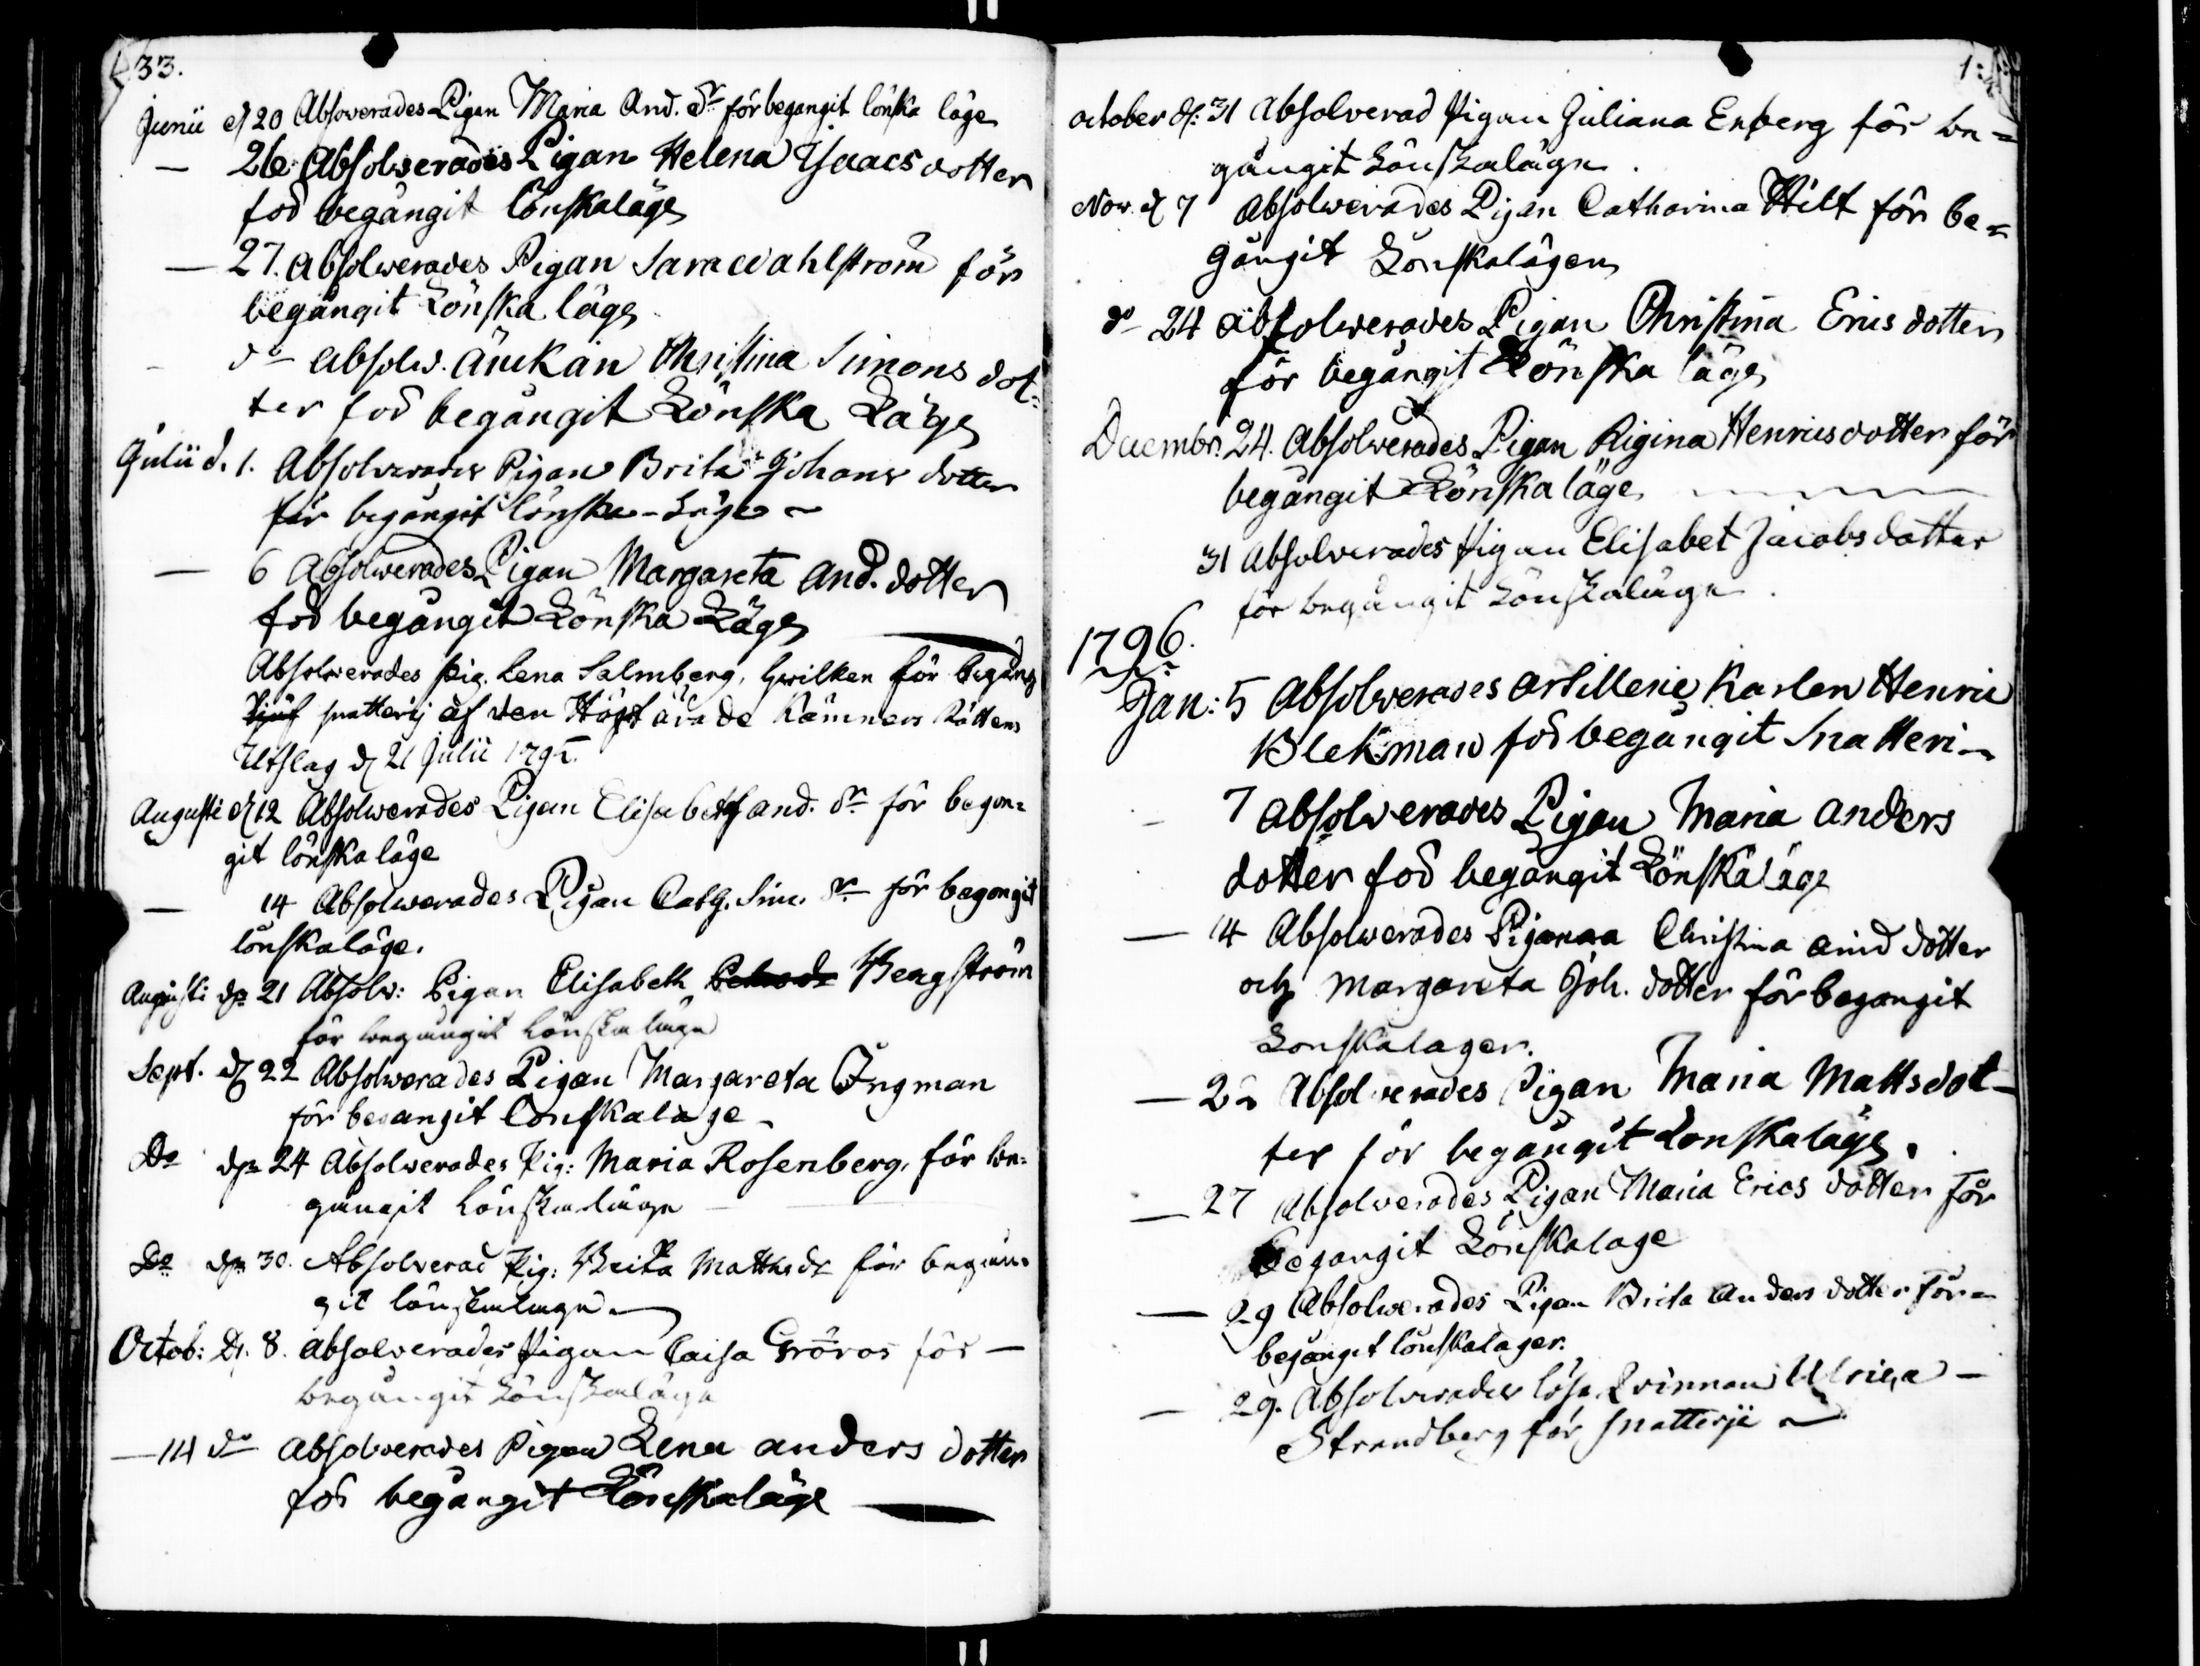 133.
Junii d 20 Absoverades Pigan Maria And. dr för begangit lönska läge
— 26 Absolverades Pigan Helena Ysaacs dotter
för begångit lönskaläge
— 27. absolwerades Pigan Sara wahlström för
begångit Lönska läge
do absolw. änckan Christina Simons dot=
ter för begångit Lönska Läge
Julii d. 1. Absolverades Pigan Brita Johans dotter
för begångit lönska-Läge ~
— 6 Absolwerades Pigan Margareta And. dotter
för begångit Lönska Läge
Absolwerades pig. Lena Salmberg, hwilken för begång
snatterij af den Högt ärade Kämners Rättens
Utslag d 21 Julii 1795.
Augusti d 12 Absolwerades Pigan Elisabeth and. dr för begon=
git lönskaläge
— 14 Absolwerades Pigan Cath. Sim. dr för begongit
lönskaläge.
Augusti d 21 Absolv: Pigan Elisabeth Bengström
för begångit Lönskaläge
Sept. d 22 Absolwerades Pigan Margareta Ingman
för begangit Lönskaläge –
Do d 24 Absolverades Pig: Maria Rosenberg, för be=
gångit Lönskaläge
Do d 30. Absolverad Pig: Brita Mattsdr för begån=
git lönskaläge
Octob: D. 8. absolverades Pigan Caisa Gröros för —
begångit Lönskaläge
— 14 do absolverades Pigan Lena anders dotter
för begångit Lönskaläge
october d: 31 Absolverad Pigan Juliana Enberg för be=
gångit Lönskaläge.
Nov d 7 Absolwerades Pigan Catharina Hilt för be=
gångit Lönskalägen
do 24 absolwerades Pigan Christina Erics dotter
för begångit Lönska läge
Decembr. 24. Absolwerades Pigan Rigina Henricsdotter för
begångit Lönskaläge
31 Absolverades Pigan Elisabet Jacobsdotter
för begångit Lönskaläge.
1796.
Jan: 5 Absolwerades Artillerie Karlen Henric
Blekman för begångit Snatteri –
– 7 Absolwerades Pigan Maria anders
dotter för begångit Lönskaläge
— 14 Absolwerades Piganaa Christina and dotter
och Margareta Joh. dotter för begangit
Lönskalager.
— 22 Absolverades Pigan Maria Mattsdot–
ter för begångit Lönskaläge.
— 27 Absolverades Pigan Maria Erics dotter för
begangit Lönskalage
— 29 Absolwerades Pigan Brita Anders dotter för –
begångit lönskalager.
— 29. Absolverades lösa Qvinnan Ulrica –
Strandberg för snatterje ~